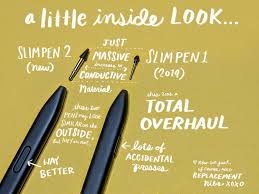 a little inside LOOK...
SLIM PEN 2
(new)
JUST
MASSIVE
increase in
CONDUCTIVE
Material
SLIM PEN 1
(2019)
these two
PENS may LOOK
SIMILAR on the
OUTSIDE,
but they're not.
this was a
TOTAL
OVERHAUL
WAY
BETTER
lots of
ACCIDENTAL
presses
REPLACEMENT
Nibs XOXO